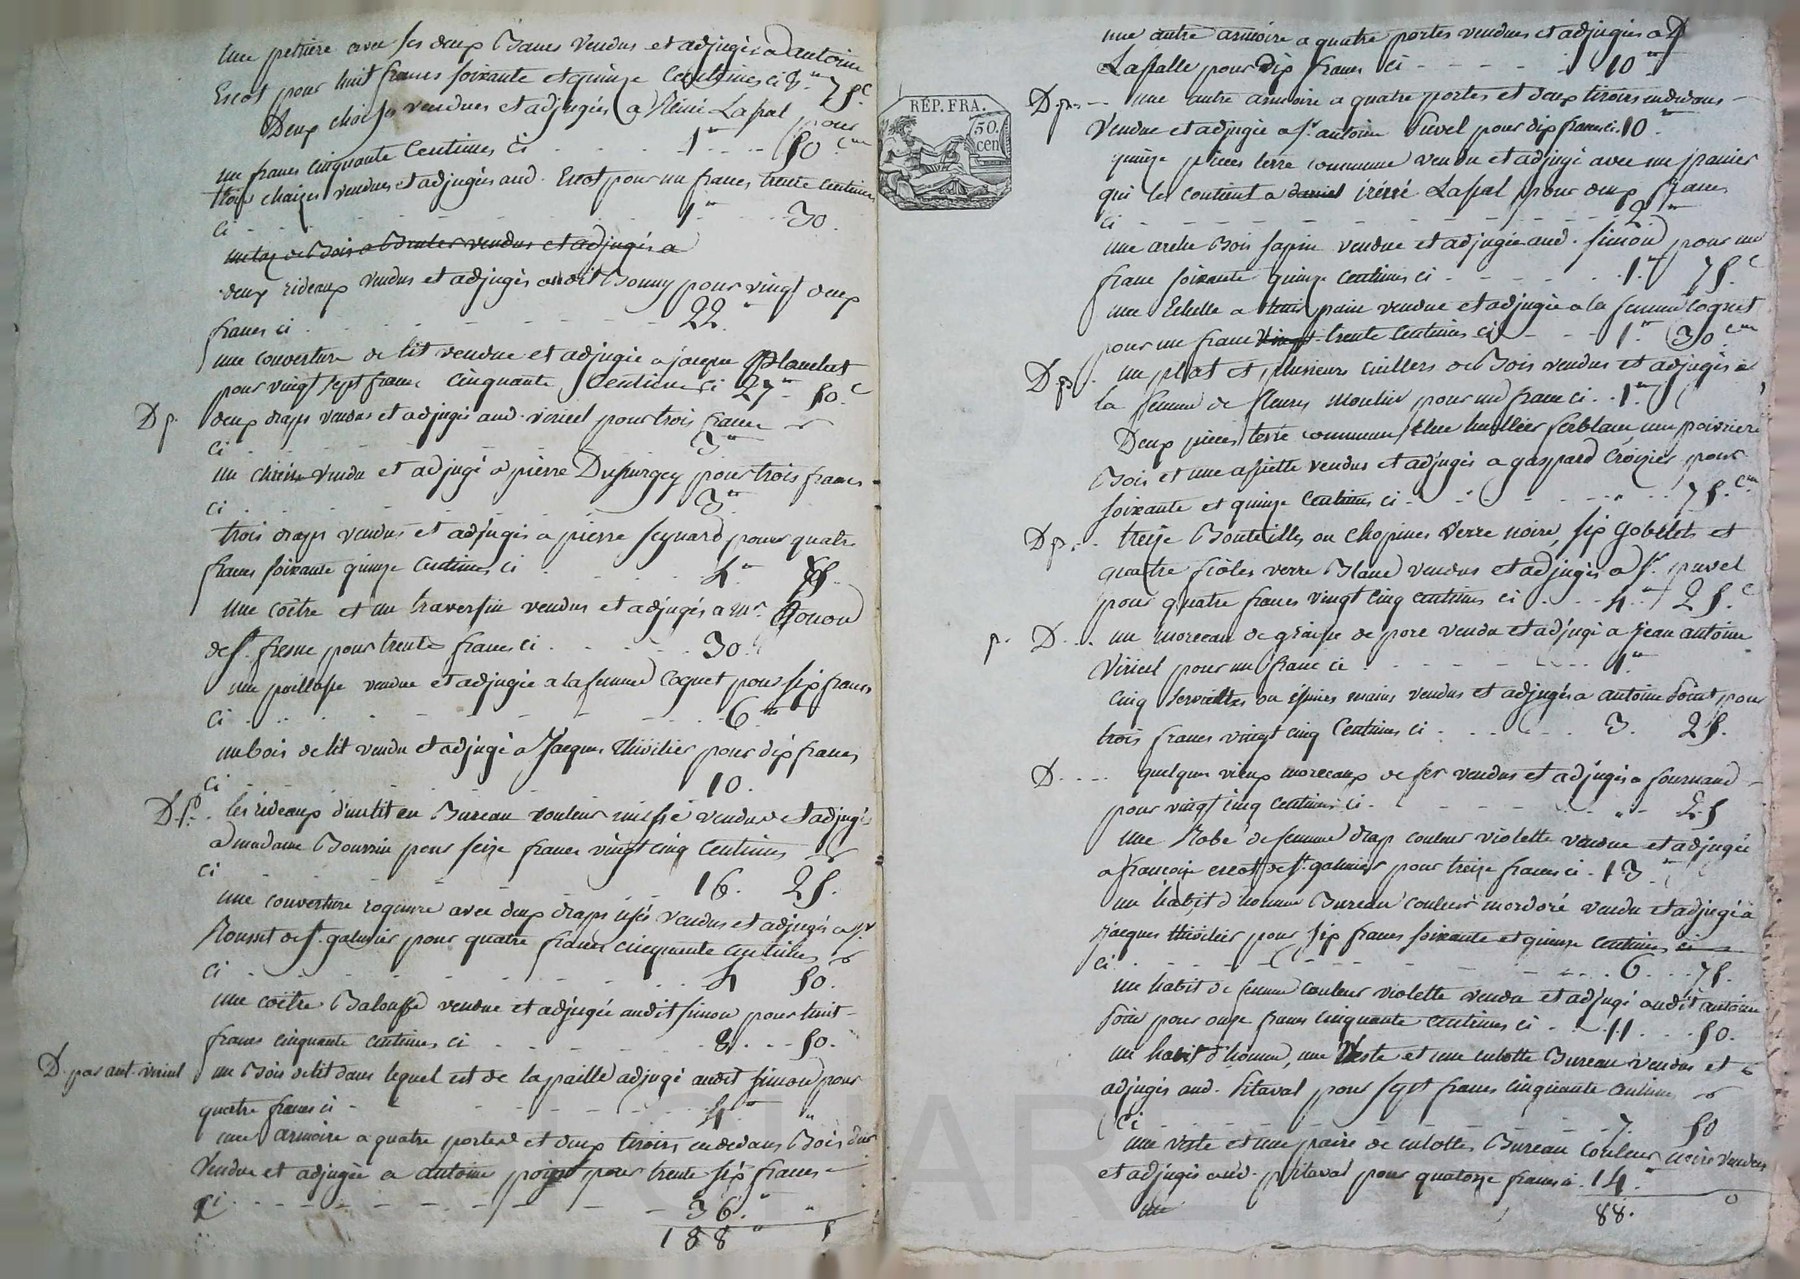 une petriere avec ses deux Bancs vendus et adjugés a antoine
Escot pour huit francs soixante et quinze Centimes ci 8.# 75.c
Deux chaises vendues et adjugées a Rémi Laspal pour
un francs cinquante Centimes ci 1# 50 cme
trois chaises vendues et adjugées aud. Escot pour un francs trente centimes
ci 1# 30.
un tas de Bois a Bruler vendus et adjugés a
deux rideaux vendus et adjugés audit Bonny pour vingt deux
francs ci 22.#
une couverture de lit vendue et adjugée a jacque Planchet
pour vingt sept franc cinquante Centimes ci 27# 50.c
D p. deux draps vendus et adjugés aud. viricel pour trois francs
ci 3#
un vendu et adjugé a pierre Dussurgey pour trois francs
ci 3.#
trois draps vendus et adjugés a pierre Seynard pour quatre
francs soixante quinze Centimes ci 4.# 75.
Une coitre et un traversin vendus et adjugés a Mr.
de St. pour trente francs ci 30.
une paillasse vendue et adjugée a la femme Coquet pour six francs
ci 6.#
un bois de lit vendu et adjugé a Jacques thivilier pour dix francs
ci 10.
D. p. les rideaux d'un lit en Bureau couleur vendus et adjugés
a madame Boursin pour seize francs vingt cinq Centimes
ci 16. 25.
une couverture avec deux draps usés vendus et adjugés a Sr
Rousset de St. galmier pour quatre francs cinquante centimes
ci 4 50.
une coitre Balouffe vendue et adjugée audit simon pour huit
francs cinquante centimes ci 8. 50.
D. par ant. viricel un Bois de lit dans lequel est de la paille adjugé audit simon pour
quatre francs ci 4# "
une armoire a quatre portes et deux tiroirs endedans Bois dur
Vendue et adjugée a antoine point pour trente six francs
ci 36. "
188 "
une autre armoire a quatre portes vendues et adjugées a D
Laspalle pour dix francs ci 10#
D. p. une autre armoire a quatre portes et deux tiroirs endedans
Vendue et adjugée a Sr. antoine Puvel pour dix francs ci. 10#
quinze pieces terre commune vendu et adjugé avec un panier
qui les contient a daniel iréné Laspal pour deux francs
ci 2#
une arche Bois sappin vendue et adjugée aud. simond pour un
franc soixante quinze centimes ci 1.# 75.c
une Echelle a main vendue et adjugée a la femme Coquet
pour un franc vingt trente centimes ci 1# 30.cme
D p. un plat et plusieurs cuillers de Bois vendus et adjugés a
la femme de fleury moulin pour un franc ci. 1#
Deux pieces terre commune, Une huillier ferblanc, une poivriere
Bois et une assiette vendus et adjugés a gaspard Croizier pour
soixante et quinze Centimes ci " 75.cme
D p. treize Bouteilles ou chopines verre noire, six gobelets et
quatre fioles verre Blanc vendus et adjugés a Sr. puvel
pour quatre francs vingt cinq centimes ci 4# 25.c
p. D. un morceau de graisse de porc vendu et adjugé a Jean antoine
Viricel pour un franc ci 1#
cinq serviettes ou essuies mains vendus et adjugés a antoine point pour
trois francs vingt cinq Centimes ci 3. 25.
D. quelques vieux morceaux de fer vendus et adjugés a fournand
pour vingt cinq centimes ci " 25
une Robe de femme drap couleur violette vendue et adjugée
a françoise escot de St. galmier pour treize francs ci. 13.#
un habit d'homme Bureau couleur mordoré vendu et adjugé a
Jacques thivilier pour six francs soixante et quinze centimes ci
ci 6. 75.
un habit de femme couleur violette vendu et adjugé audit antoine
pour onze francs cinquante centimes ci 11. 50.
un habit d'homme, une Veste et une culotte Bureau vendus et
adjugés aud. pitaval pour sept francs cinquante centimes
ci 7. 50
une veste et une paire de culottes Bureau couleur noire vendues
et adjugés aud. pitaval pour quatorze francs ci. 14.#
une 88. 0
RÉP. FRA.
50.
cen